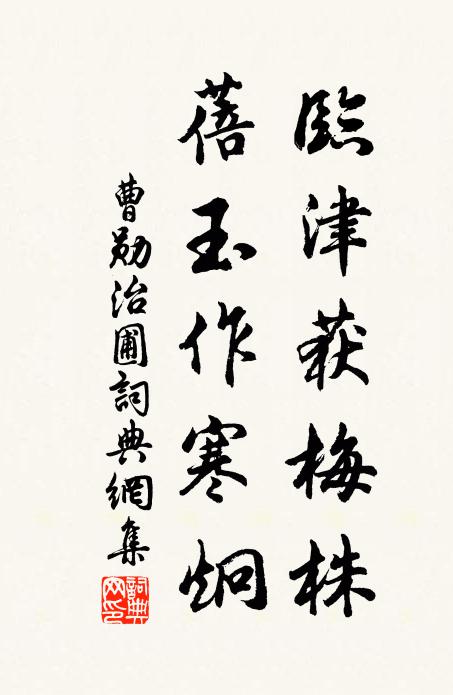 臨津获梅株
蓓玉作寒炯
曹勋治圃詞典網集
詞典网印